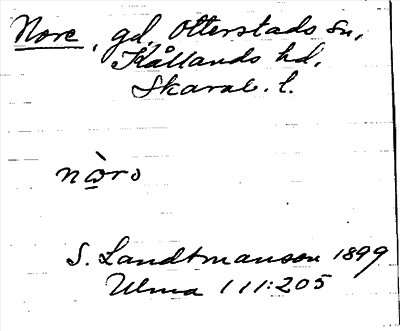 Nore, gd, Otterstads sn,
Kållands hd,
Skarab. l.
nɷ̀ro
S. Landtmanson 1899
Ulma 111:205